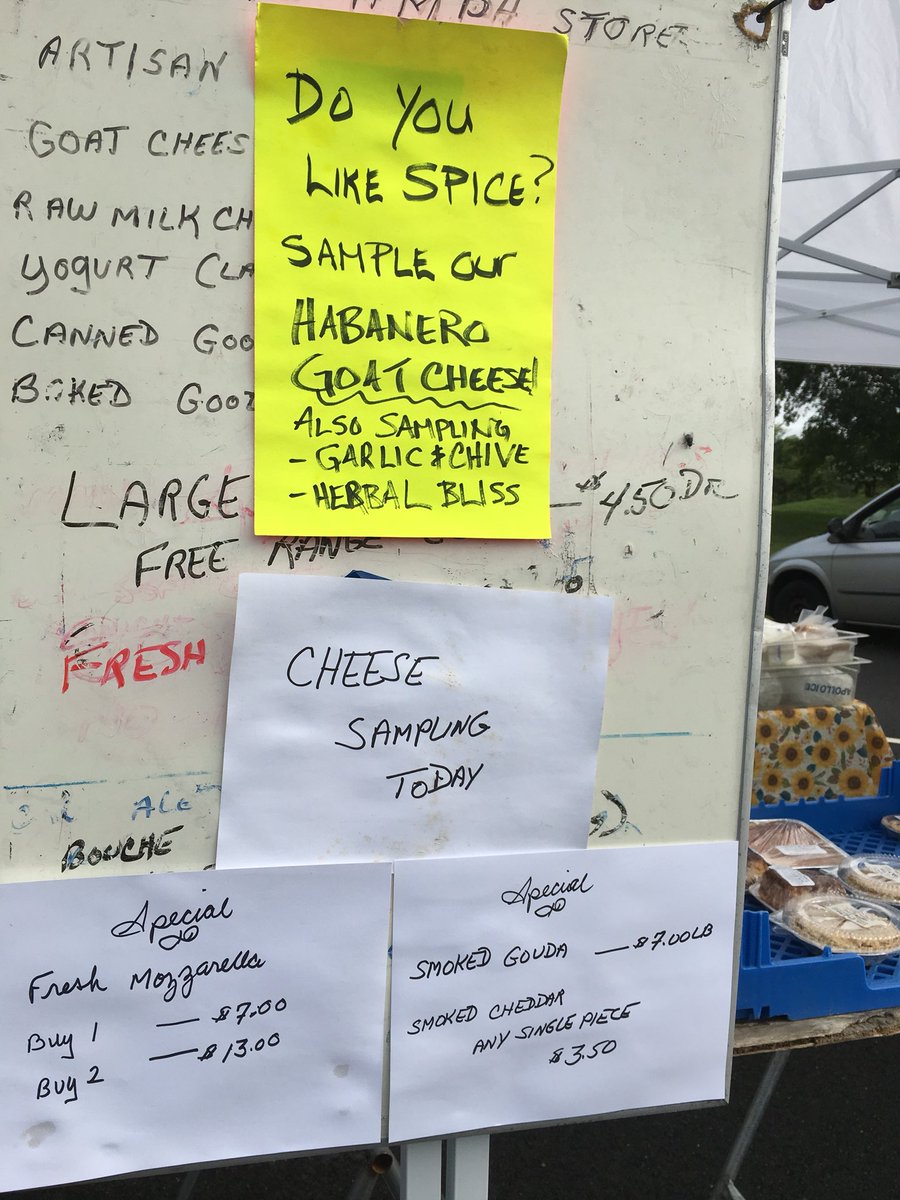 STORE
ARTISAN
GOAT CHEES
RAW MILK CH
YOGURT CLA
CANNED GOO
BAKED GOOD
LARGE
$4.50 DZ
FREE RANGE
FRESH
BOUCHE
DO YOU
LIKE SPICE?
SAMPLE our
HABANERO
GOAT CHEESE!
ALSO SAMPLING
- GARLIC & CHIVE
- HERBAL BLISS
CHEESE
SAMPLING
TODAY
Special
Fresh Mozzarella
Buy 1 — $7.00
Buy 2 — $13.00
Special
SMOKED GOUDA — $7.00LB
SMOKED CHEDDAR
ANY SINGLE PIECE
$3.50
APOLLO ICE